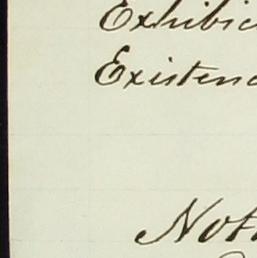 Exhibic
Existenc
Noth